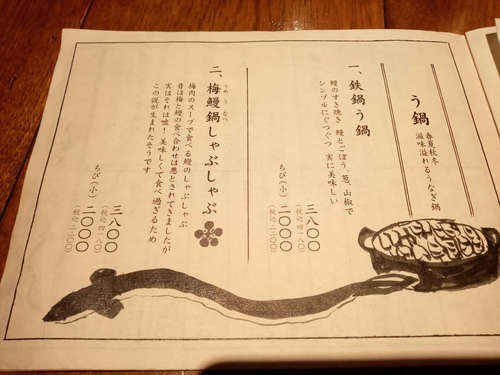 う鍋
春夏秋冬
滋味溢れるうなぎ鍋
一、鉄鍋う鍋
鰻のすき焼き 鰻とごぼう、葱、山椒で
シンプルにぐつぐつ 実に美味しい
三八〇〇
(税込 四一八〇)
ちび(小) 二〇〇〇
(税込 二二〇〇)
二、梅鰻鍋しゃぶしゃぶ
うめ う なべ
梅肉のスープで食べる鰻のしゃぶしゃぶ
昔は梅と鰻の食べ合わせは悪とされてきましたが
実はそれは嘘! 美味しくて食べ過ぎるため
この説が生まれたそうです
三八〇〇
(税込 四一八〇)
ちび(小) 二〇〇〇
(税込 二二〇〇)